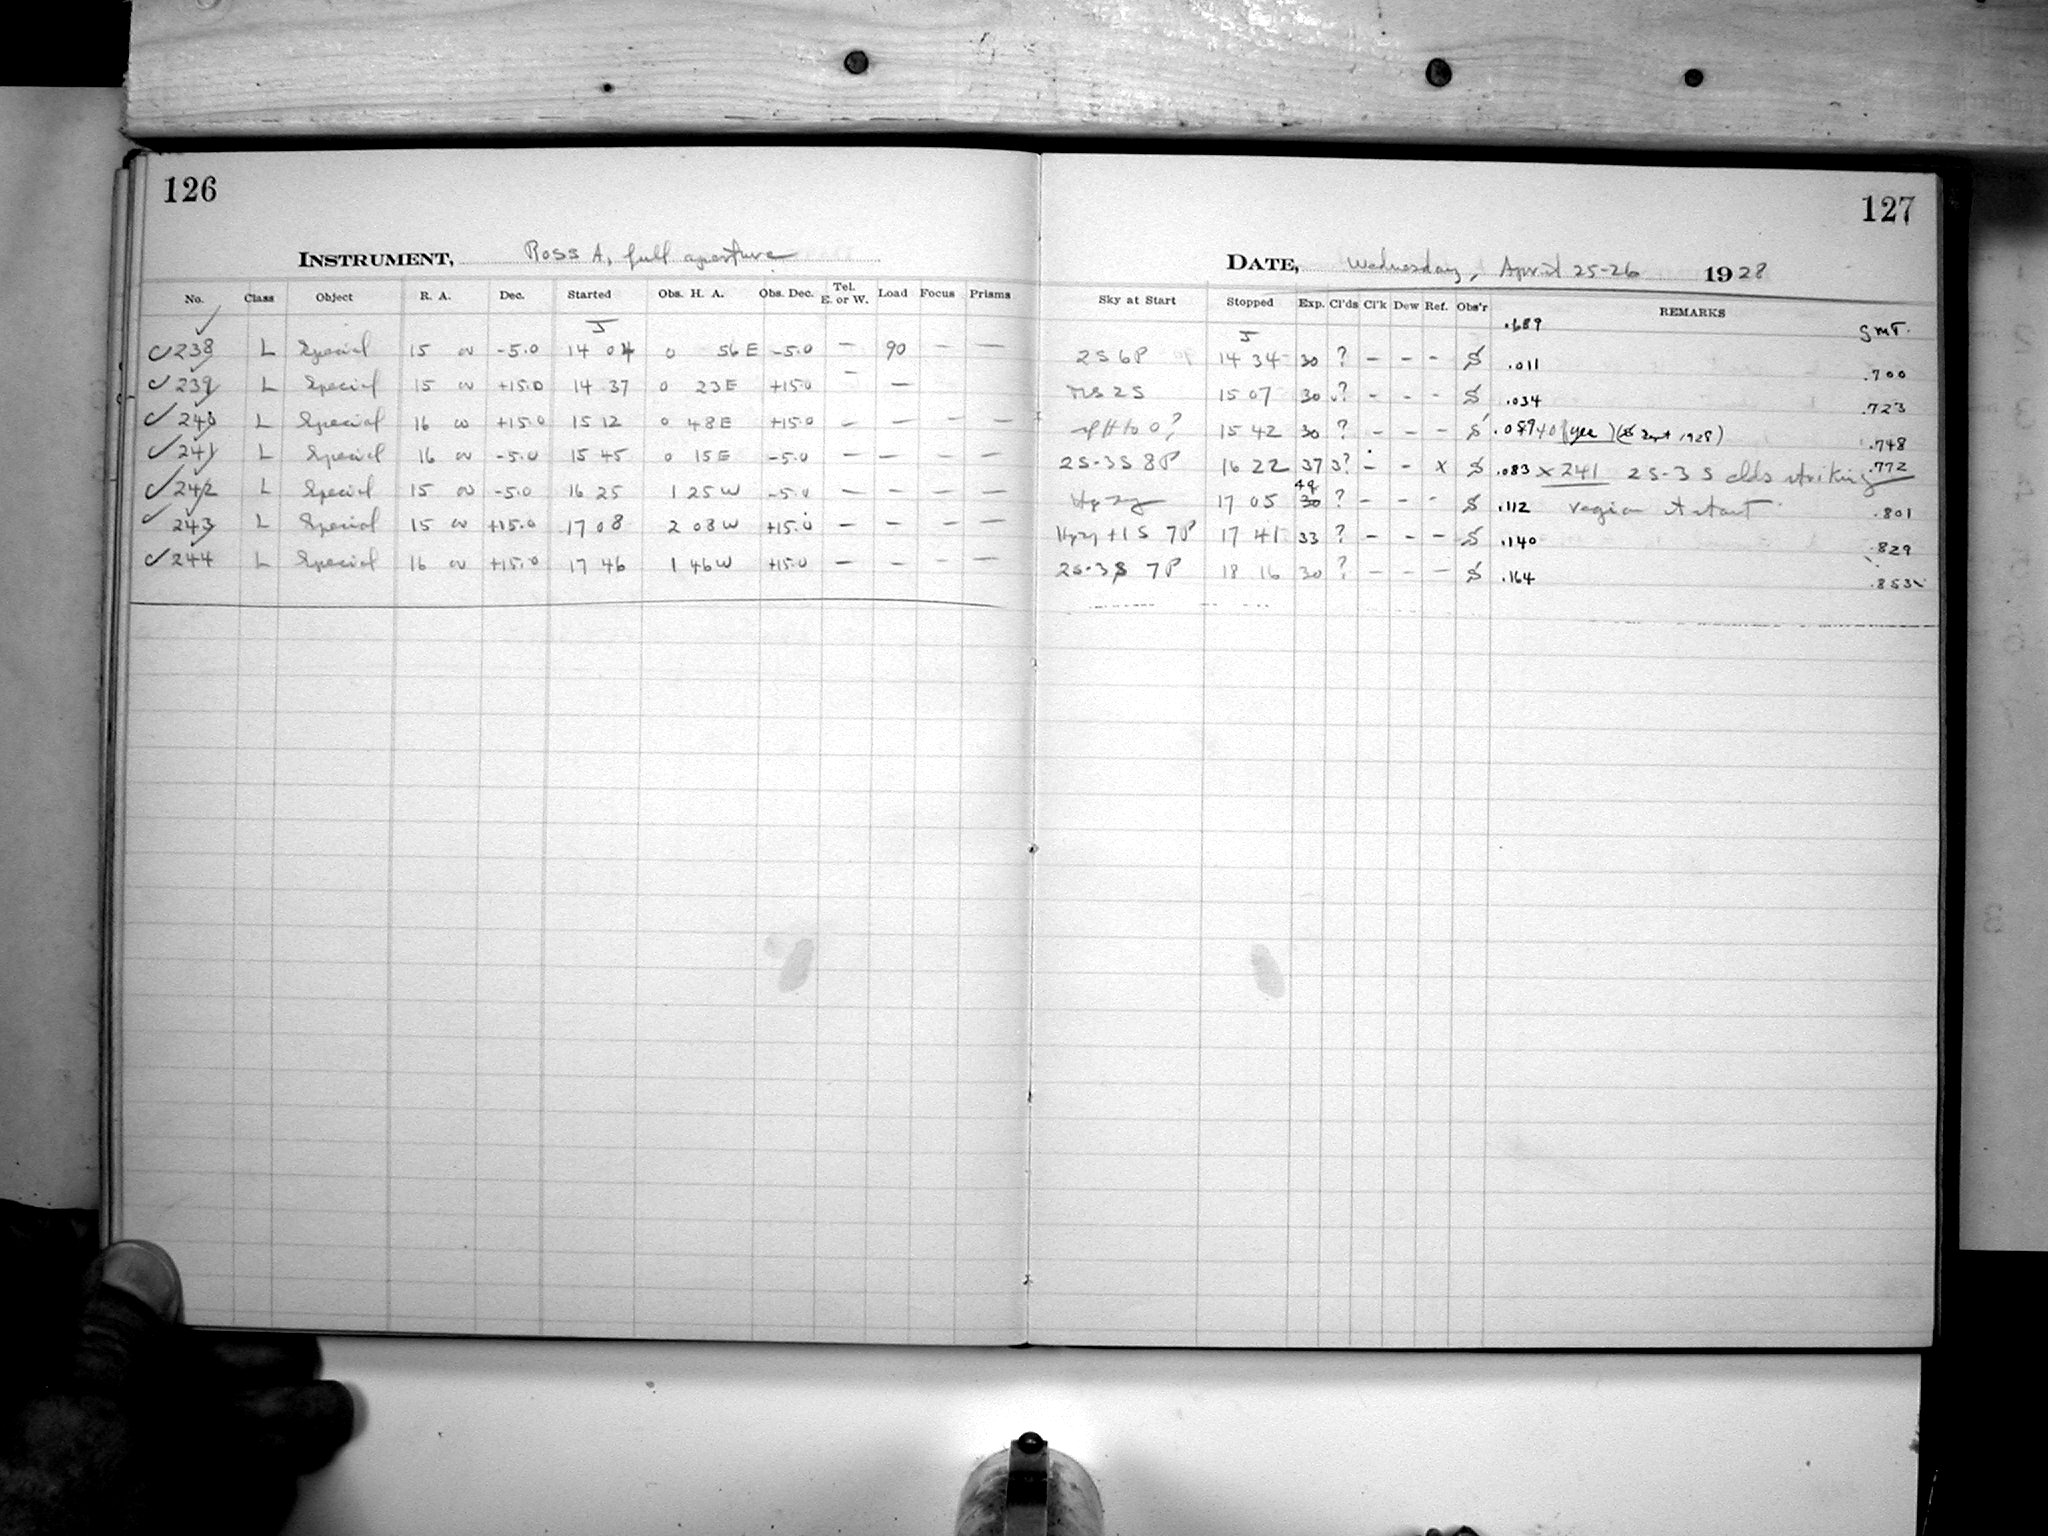 126
127
INSTRUMENT, Ross A, full aperture
DATE, Wednesday, April 25-26 1928
No. Class Object R. A. Dec. Started Obs. H. A. Obs. Dec. Tel. E. or W. Load Focus Prisms
Sky at Start Stopped Exp. Cl'ds Cl'k Dew Ref. Obs'r REMARKS
.689 GMT.
✓238 L Special 15 00 -5.0 14 04 0 56 E -5.0 — 90 — — 2S 6P 14 34 30 ? - - - S .011 .700
✓239 L Special 15 00 +15.0 14 37 0 23E +15.0 — — 2S 15 07 30 ? - - - S .034 .723
✓240 L Special 16 00 +15.0 15 12 0 48E +15.0 — — — — to 0? 15 42 30 ? - - - S (yes) (S Sept 1928) .748
✓241 L Special 16 00 -5.0 15 45 0 15E -5.0 — — — — 2S-3S 8P 16 22 37 3? - - x S .083 x 241 2S-3S clds striking .772
✓242 L Special 15 00 -5.0 16 25 1 25W -5.0 — — — — Hazy 17 05 30 ? - - - S .112 region at start .801
✓243 L Special 15 00 +15.0 17 08 2 08W +15.0 — — — — Hazy +1S 7P 17 41 33 ? - - - S .140 .829
✓244 L Special 16 00 +15.0 17 46 1 46W +15.0 — — — — 2S-3S 7P 18 16 30 ? - - - S .164 .853